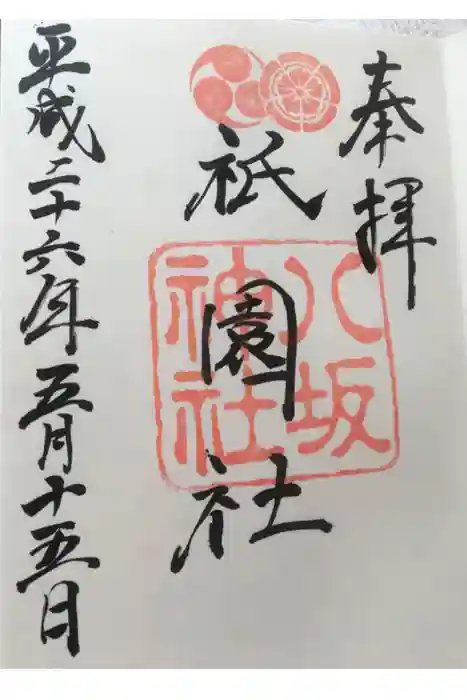 奉拝
祇園社
八坂
神社
平成二十六年五月十五日